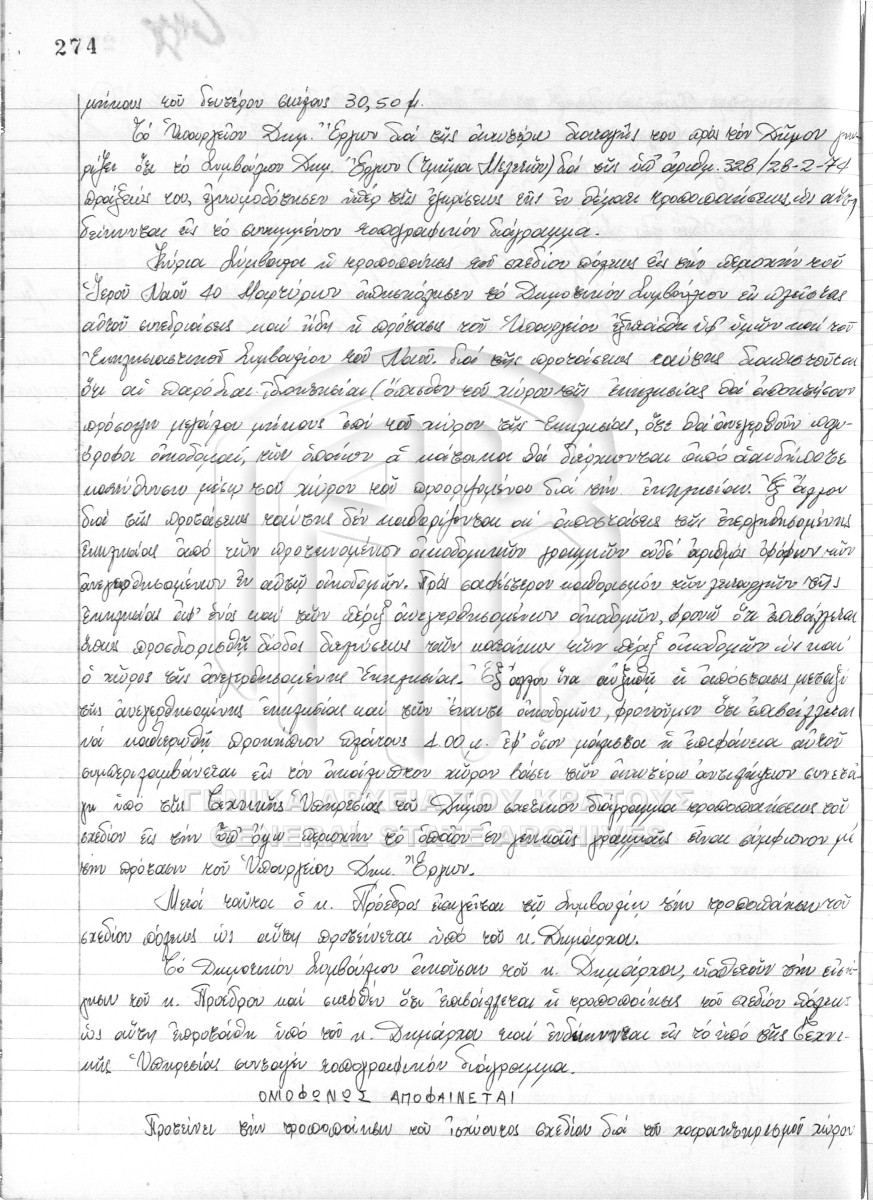 274
μήκους τοῦ δευτέρου σκέλους 30,50 μ.
Τό Ὑπουργεῖον Δημ. Ἔργων διά τῆς ἀνωτέρω διαταγῆς του πρός τόν Δῆμον γνω-
ρίζει ὅτι τό Συμβούλιον Δημ. Ἔργων (Τμῆμα Μελετῶν) διά τῆς ὑπ' ἀριθμ. 328/28-2-74
πράξεώς του, ἐγνωμοδότησεν ὑπέρ τῆς ἐγκρίσεως τῆς ἐν θέματι τροποποιήσεως, ὡς αὕτη
δείκνυται εἰς τό συνημμένον τοπογραφικόν διάγραμμα.
Κύριοι Σύμβουλοι ἡ τροποποίησις τοῦ σχεδίου πόλεως εἰς τήν περιοχήν τοῦ
Ἱεροῦ Ναοῦ 40 Μαρτύρων ἀπησχόλησεν τό Δημοτικόν Συμβούλιον εἰς πλείστας
αὐτοῦ συνεδριάσεις καί ἤδη ἡ πρότασις τοῦ Ὑπουργείου ἐξητάσθη ὑφ' ὑμῶν καί τοῦ
Ἐκκλησιαστικοῦ Συμβουλίου τοῦ Ναοῦ. διά τῆς προτάσεως ταύτης διαπιστοῦται
ὅτι αἱ παρόδιαι ἰδιοκτησίαι (ὄπισθεν τοῦ χώρου τῆς ἐκκλησίας θά ἀποκτήσουν
πρόσοψιν μεγάλου μήκους ἐπί τοῦ χώρου τῆς Ἐκκλησίας, ὅτε θά ἀνεγερθοῦν πολυ-
όροφοι οἰκοδομαί, τῶν ὁποίων οἱ κάτοικοι θά διέρχωνται ἀπό οἱανδήποτε
κατεύθυνσιν μέσῳ τοῦ χώρου τοῦ προοριζομένου διά τήν ἐκκλησίαν. Ἐξ ἄλλου
διά τῆς προτάσεως ταύτης δέν καθορίζονται αἱ ἀποστάσεις τῆς ἀνεγερθησομένης
ἐκκλησίας ἀπό τῶν προτεινομένων οἰκοδομικῶν γραμμῶν οὐδέ ἀριθμός ὀρόφων τῶν
ἀνεγερθησομένων ἐν αὐτῇ οἰκοδομῶν. Πρός σαφέστερον καθορισμόν τῶν λειτουργιῶν τῆς
ἐκκλησίας ἀφ' ἑνός καί τῶν πέριξ ἀνεγερθησομένων οἰκοδομῶν, φρονῶ ὅτι ἐπιβάλλεται
ὅπως προσδιορισθῇ δίοδος διελεύσεως τῶν κατοίκων τῶν πέριξ οἰκοδομῶν ὡς καί
ὁ χῶρος τῆς ἀνεγερθησομένης Ἐκκλησίας. Ἐξ ἄλλου ἵνα αὐξηθῇ ἡ ἀπόστασις μεταξύ
τῆς ἀνεγερθησομένης ἐκκλησίας καί τῶν ἔναντι οἰκοδομῶν, φρονοῦμεν ὅτι ἐπιβάλλεται
νά καθιερωθῇ προκήπιον πλάτους 4.00 μ. ἐφ' ὅσον μάλιστα ἡ ἐπιφάνεια αὐτοῦ
συμπεριλαμβάνεται εἰς τόν ἀκάλυπτον χῶρον βάσει τῶν ἀνωτέρω ἀντιλήψεων συνετά-
γη ὑπό τῆς Τεχνικῆς Ὑπηρεσίας τοῦ Δήμου σχετικόν διάγραμμα τροποποιήσεως τοῦ
σχεδίου εἰς τήν ὑπ' ὄψιν περιοχήν τό ὁποῖον ἐν γενικαῖς γραμμαῖς εἶναι σύμφωνον μέ
τήν πρότασιν τοῦ Ὑπουργείου Δημ. Ἔργων.
Μετά ταῦτα ὁ κ. Πρόεδρος εἰσηγεῖται τῷ Συμβουλίῳ τήν τροποποίησιν τοῦ
σχεδίου πόλεως ὡς αὕτη προτείνεται ὑπό τοῦ κ. Δημάρχου.
Τό Δημοτικόν Συμβούλιον ἀκοῦσαν τοῦ κ. Δημάρχου, υἱοθετοῦν τήν εἰσή-
γησιν τοῦ κ. Προέδρου καί σκεφθέν ὅτι ἐπιβάλλεται ἡ τροποποίησις τοῦ σχεδίου πόλεως
ὡς αὕτη ἐπροτάθη ὑπό τοῦ κ. Δημάρχου καί ἐνδείκνυται εἰς τό ὑπό τῆς Τεχνι-
κῆς Ὑπηρεσίας συνταγέν τοπογραφικόν διάγραμμα.
ΟΜΟΦΩΝΩΣ ΑΠΟΦΑΙΝΕΤΑΙ
Προτείνει τήν τροποποίησιν τοῦ ἰσχύοντος σχεδίου διά τοῦ χαρακτηρισμοῦ χώρου
ΓΕΝΙΚΑ ΑΡΧΕΙΑ ΤΟΥ ΚΡΑΤΟΥΣ
GENERAL STATE ARCHIVES